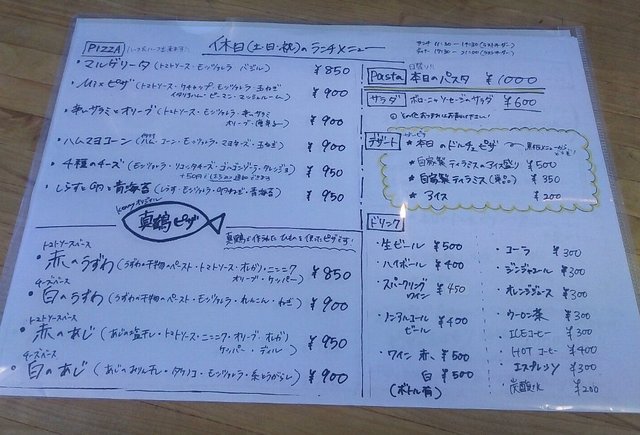 PIZZA
休日(土・日・祝)のランチメニュー
・マルゲリータ (トマトソース・モッツァレラ・バジル) ¥850
・MIXピザ (トマトソース・ケチャップ・モッツァレラ・玉ねぎ ¥900
イタリアハム・ピーマン・マッシュルーム)
・辛いサラミとオリーブ (トマトソース・モッツァレラ・辛いサラミ ¥900
・ハムマヨコーン (ハム・コーン・モッツァレラ・マヨネーズ・玉ねぎ) ¥900
・4種のチーズ (モッツァレラ・リコッタチーズ・ゴルゴンゾーラ・タレッジョ) ¥950
・しらすと九条ねぎと青海苔 (しらす・モッツァレラ・九条ねぎ・青海苔) ¥950
真鶴ピザ
トマトソースベース
・赤のうずわ (うずわの干物のペースト・トマトソース・オレガノ・ニンニク ¥850
オリーブ・ケッパー)
チーズベース
・白のうずわ (うずわの干物のペースト・モッツァレラ・れんこん・ねぎ) ¥900
トマトソースベース
・赤のあじ (あじの塩干し・トマトソース・ニンニク・オリーブ・オレガノ ¥950
ケッパー・ディル)
チーズベース
・白のあじ (あじのみりん干し・タケノコ・モッツァレラ・糸とうがらし) ¥900
Pasta 本日のパスタ ¥1000
サラダ ¥600
デザート
＊本日のドルチェピザ
＊自家製ティラミスのアイス盛り ¥500
＊自家製ティラミス(単品) ¥350
＊アイス ¥200
ドリンク
・生ビール ¥500
・ハイボール ¥400
・スパークリングワイン ¥450
・ノンアルコールビール ¥400
・ワイン 赤 ¥500
白 ¥500
(ボトル有)
・コーラ ¥300
・ジンジャエール ¥300
・オレンジジュース ¥300
・ウーロン茶 ¥300
・ICEコーヒー ¥300
・HOT コーヒー ¥400
・エスプレッソ ¥300
・炭酸水 ¥200